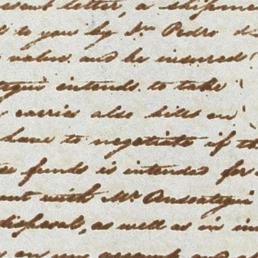 esent letter, a shipmen
t to you by Mr. Pedro d
value, and be insured
tegui intends to take
carries also bills on
have to negotiate if th
funds is intended for
ent with Mr. Ansoategui
disposal, as well as in in